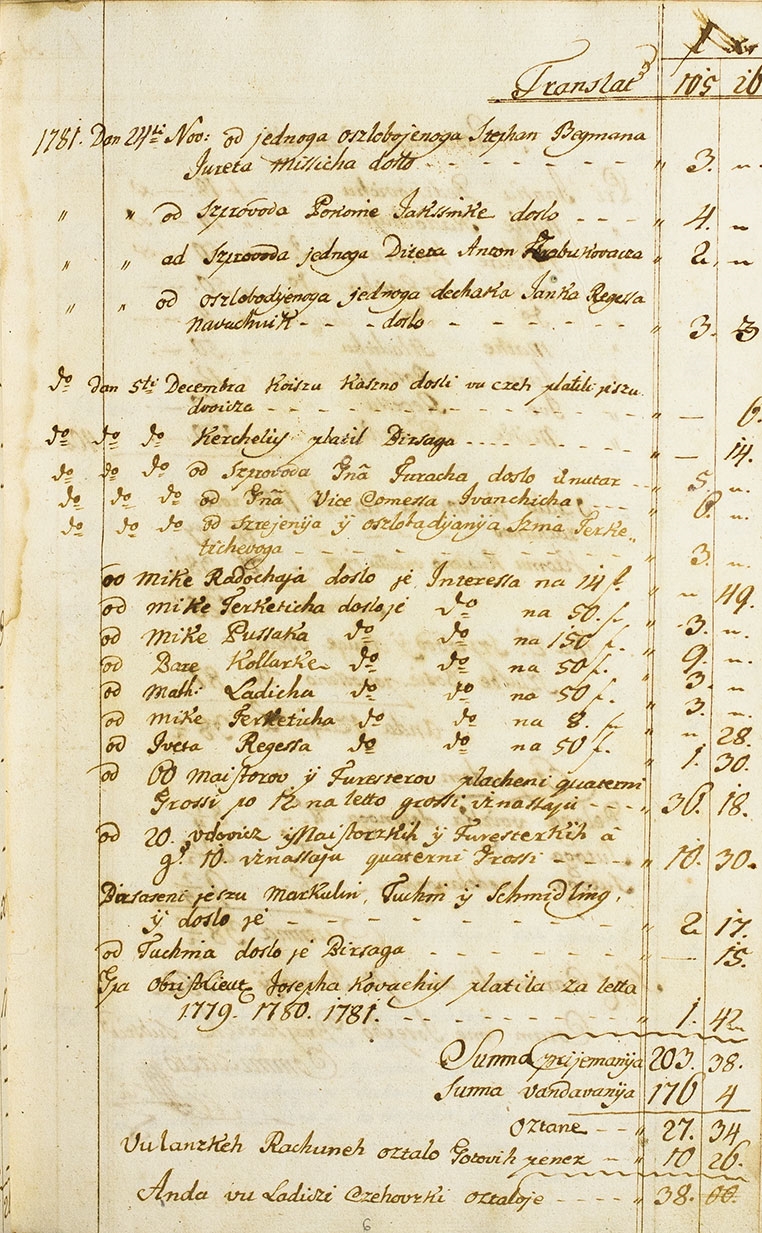 f xr
Translat 105 26
1781. Dan 24ti Nov: od jednoga oszlobojenoga Stephan Begmana
Jureta Missicha doslo - - - - - - " 3. "
" " od Szprovoda Pokonie Jaksinke doslo - - - " 4. "
" " ad Szprovoda jednoga Diteta Anton Hrabukovacza " 2. "
" " od oszlobodjenoga jednoga dechaka Janka Regessa
navuchnik - - - doslo - - - - - " 3. 3
do dan 5ti Decembra Koiszu kaszno dosli vu czeh platili jeszu
dvoicza - - - - - - - - - - " — 6.
do do do Kerchelius platil Birsaga - - - - " — 14.
do do do od Szprovoda Gna Juracha doslo unutar - - " 5. "
do do do od Gna Vice Comessa Ivanchicha - " 6. "
do do do od Szrejenija ÿ oszlobadjanja Szma Terke„
tichevoga - - - - - - - - " 3. "
od Mike Radochaja doslo je Interessa na 14 f. " " 49.
od Mike Terketicha doslo je do na 50. f. " 3. "
od Mike Pussaka do do na 150 f. " 9. "
od Bare Kollarke do do na 50 f. " 3. "
od Math: Ladicha do do na 50 f. " 3. "
od Mike Terketicha do do na 8. f. " " 28.
od Iveta Regessa do do na 50 f. " 1. 30.
od 60 Majstorov ÿ Furesterov placheni quaterni
Grossi po 12 na letto grossi vznassaju - - - " 36. 18.
od 20. vdovicz ÿ Majstorzkih ÿ Furesterkih â
gr. 10. vznassaju quaterni Grossi - - - - " 10. 30.
Birsaseni jeszu Markulin, Tuchni ÿ Schmidling,
ÿ doslo je - - - - - - - - " 2 17.
od Tuchnia doslo je Birsaga - - - - - " — 15.
Gpa Obristlieut Josepha Kovachus platila za letta
1779. 1780. 1781. - - - - - - - " 1. 42
Summa prijemanija 203. 38.
Summa vandavanija 176 4
Oztane - - " 27. 34
Vulanzkeh Rachuneh oztalo Gotovih penez - " 10 26.
Anda vu Ladiczi Czehovzki oztaloje - - - - " 38. 00.
6